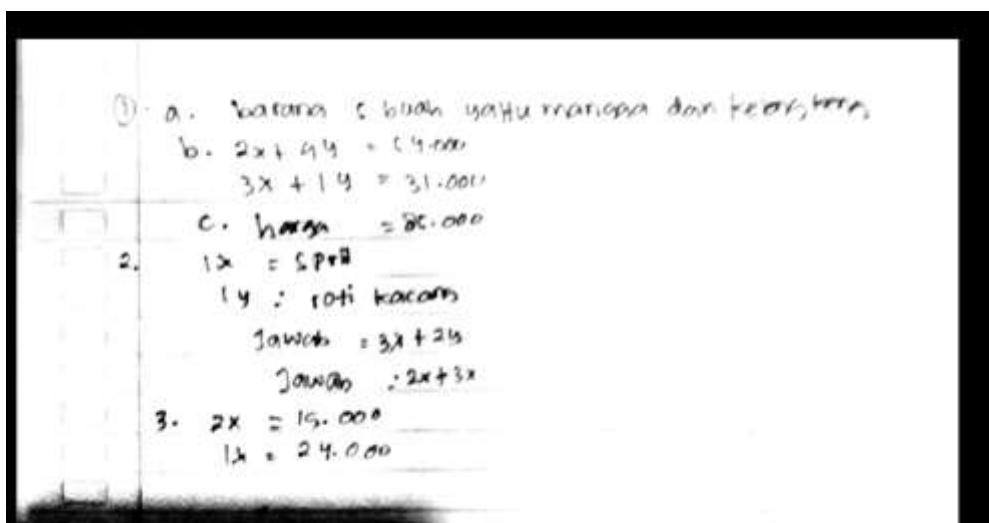 ① a. barang 5 buah yaitu mangga dan kelengkeng
b. 2x + 4y = 54.000
3x + 1y = 31.000
c. harga = 85.000
2. 1x =
1y : roti kacang
Jawab = 3x + 2y
Jawab : 2x + 3x
3. 2x = 15.000
1x = 24.000